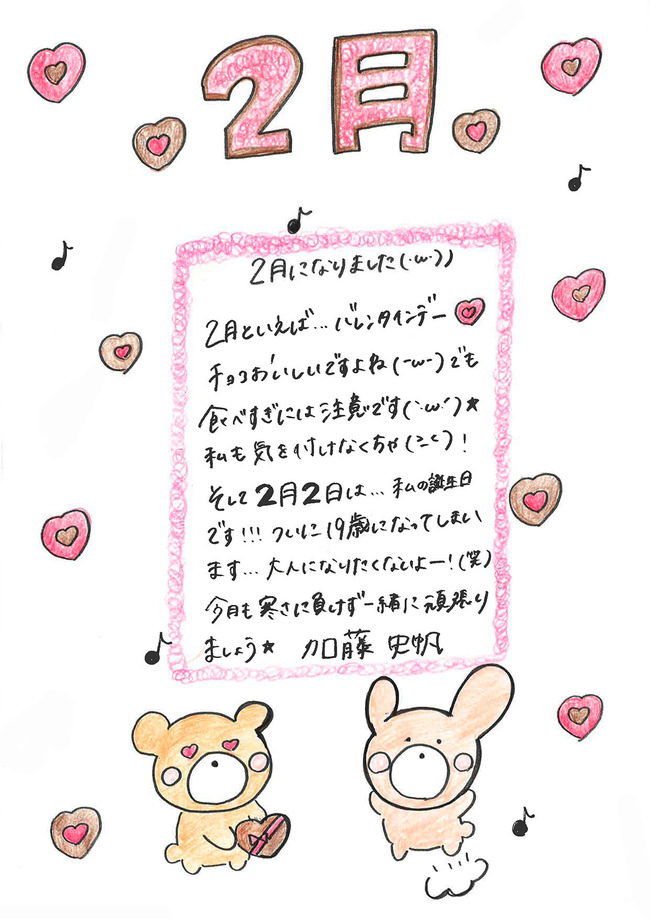 2月
2月になりました(·ω·))
2月といえば…バレンタインデー
チョコおいしいですよね(-ω-)でも
食べすぎには注意です(`·ω·´)★
私も気を付けなくちゃ(ﾆ-ﾆ)!
そして2月2日は…私の誕生日
です!!!ついに19歳になってしまい
ます…大人になりたくないよー!(笑)
今月も寒さに負けず一緒に頑張り
ましょう★ 加藤 史帆